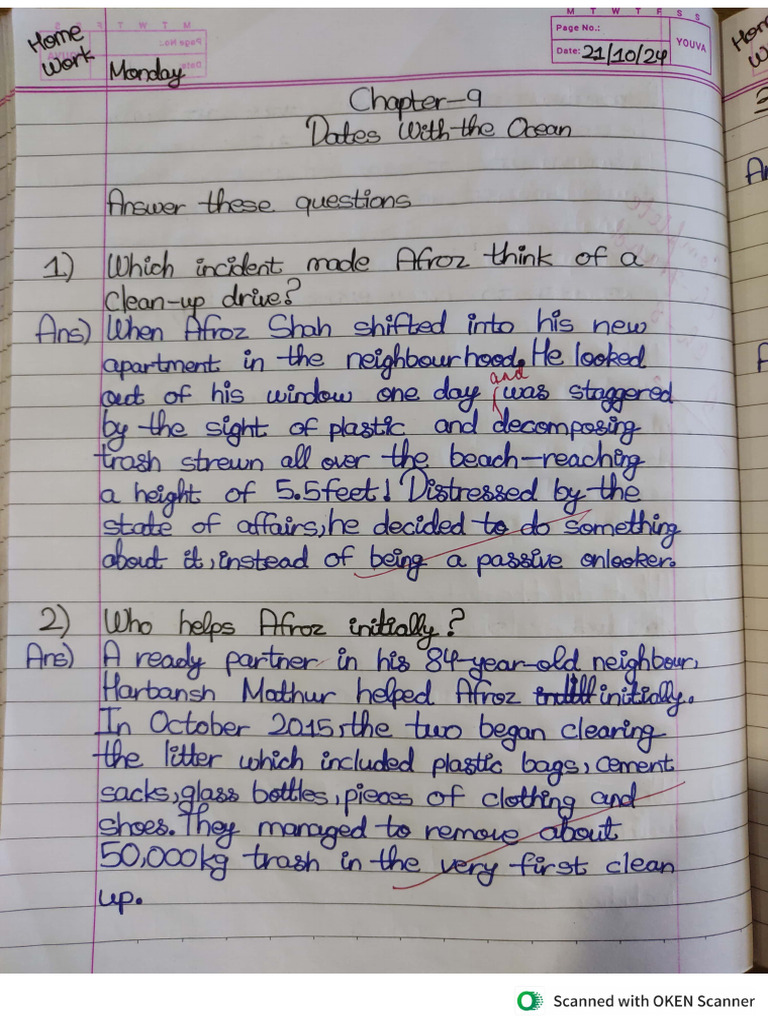 M T W T F S S
Page No.:
Date: 21/10/24
YOUVA
Home
Work
Monday
Chapter-9
Dates With the Ocean
Answer these questions
1) Which incident made Afroz think of a
clean-up drive?
Ans) When Afroz Shah shifted into his new
apartment in the neighbourhood. He looked
and
out of his window one day was staggered
by the sight of plastic and decomposing
trash strewn all over the beach-reaching
a height of 5.5feet! Distressed by the
state of affairs, he decided to do something
about it, instead of being a passive onlooker.
2) Who helps Afroz initially?
Ans) A ready partner in his 84-year-old neighbour,
Harbansh Mathur helped Afroz initially.
In October 2015, the two began clearing
the litter which included plastic bags, cement
sacks, glass bottles, pieces of clothing and
shoes. They managed to remove about
50,000kg trash in the very first clean
up.
Scanned with OKEN Scanner